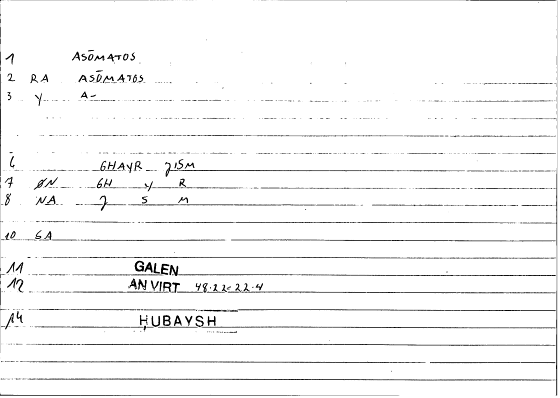 1 ASŌMATOS
2 RA ASŌMATOS
3 Y A-
6 GHAYR JISM
7 ØN GH Y R
8 NA J S M
10 GA
11 GALEN
12 AN VIRT 48.22-22.4
14 ḤUBAYSH